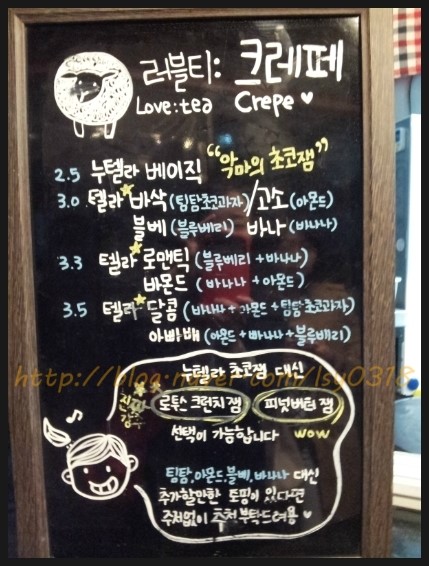 러블티: 크레페
Love:tea Crepe ♥
2.5 누텔라 베이직 "악마의 초코잼"
3.0 텔라★바삭 (팀탐초코과자)/고소 (아몬드)
블베 (블루베리) 바나 (바나나)
3.3 텔라★로맨틱 (블루베리+바나나)
바몬드 (바나나+아몬드)
3.5 텔라★달콤 (바나나+아몬드+팀탐초코과자)
아빠배 (아몬드+빠나나+블루배리)
누텔라 초코잼 대신
로투스 크런치 잼 피넛버터 잼
선택이 가능합니다 wow
팀탐,아몬드,블베,바나나 대신
추가할만한 토핑이 있다면
주저없이 추천 부탁드려용 ♥
http://blog.naver.com/lsy0318